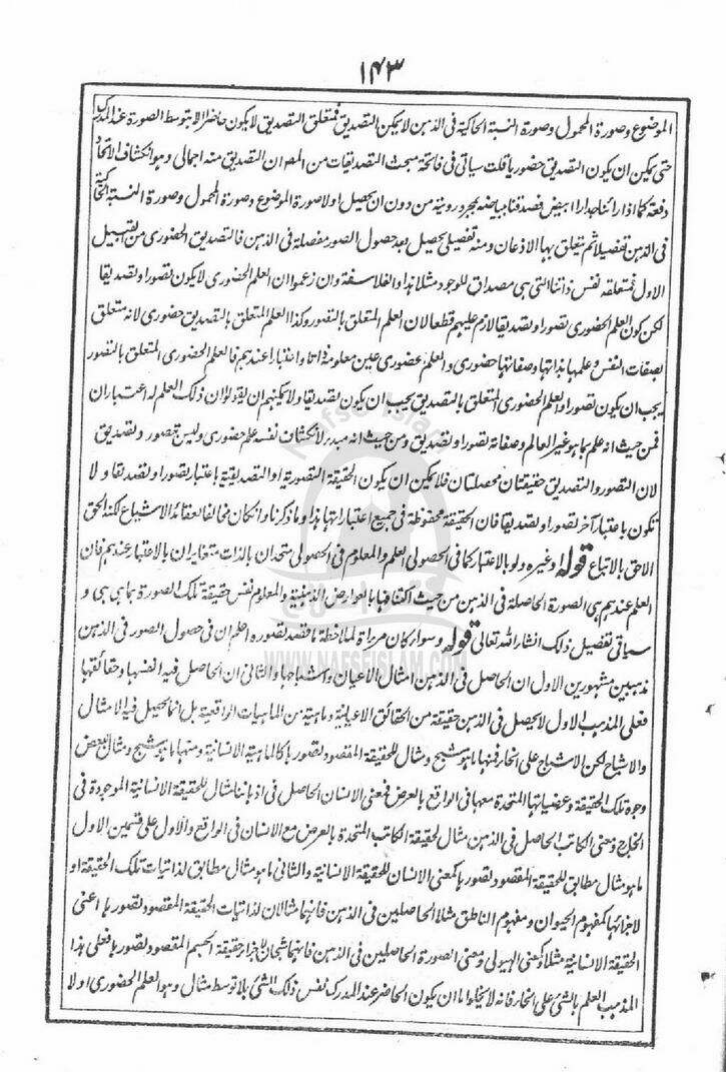 ١٤٣
الموضوع وصورة المحمول وصورة النسبة الحاكية فى الذهن لا يمكن التصديق فمتعلق التصديق لا يكون حاضرا الا بتوسط الصورة عند المدرك
حتى يمكن ان يكون التصديق حضوريا قلت سياتى فى فاتحة مبحث التصديقات من المص ان التصديق منه اجمالى وهو انكشاف الاتحاد
دفعة كما اذا رأينا جدارا ابيض فصدقنا ببياضه بمجرد رويته من دون ان يحصل اولا صورة الموضوع وصورة المحمول وصورة النسبة الحاكية
فى الذهن تفصيلا ثم يتعلق بها الاذعان ومنه تفصيلى يحصل بعد حصول الصور مفصلة فى الذهن فالتصديق الحضورى من القبيل
الاول فمتعلقه نفس ذاتنا التى هى مصداق للوجود مثلا هذا والفلاسفة وان زعموا ان العلم الحضورى لا يكون تصورا وتصديقا
لكن كون العلم الحضورى تصورا وتصديقا لازم عليهم قطعا لان العلم المتعلق بالتصور وكذا العلم المتعلق بالتصديق حضورى لانه متعلق
بصفات النفس وعلمها بذاتها وصفاتها حضورى والعلم الحضورى عين معلومه ذاتا واعتبارا عندهم فالعلم الحضورى المتعلق بالتصور
يجب ان يكون تصورا والعلم الحضورى المتعلق بالتصديق يجب ان يكون تصديقا ولا يمكنهم ان يقولوا ان ذلك العلم له اعتباران
فمن حيث انه علم بما هو غير العالم وصفاته تصور او تصديق ومن حيث انه مبدء لانكشاف نفسه علم حضورى وليس بتصور وتصديق
لان التصور والتصديق حقيقتان محصلتان فلا يمكن ان يكون الحقيقة التصورية او التصديقية باعتبار تصورا وتصديقا ولا
تكون باعتبار آخر تصورا وتصديقا فان الحقيقة محفوظة فى جميع اعتباراتها هذا وما ذكرنا وان كان مخالفا لعقائد الاشياع لكنه الحق
الاحق بالاتباع قوله وغيره ولو بالاعتبار كما فى الحصولى العلم والمعلوم فى الحصولى متحدان بالذات متغايران بالاعتبار عندهم فان
العلم عندهم هى الصورة الحاصلة فى الذهن من حيث اكتنافها بالعوارض الذهنية والمعلوم نفس حقيقة تلك الصورة بما هى هى و
سياتى تفصيل ذلك انشاء الله تعالى قوله وسواء كان مرآة لملاحظة ما قصد تصوره اعلم ان فى حصول الصور فى الذهن
مذهبين مشهورين الاول ان الحاصل فى الذهن امثال الاعيان واشباحها والثانى ان الحاصل فيه انفسها وحقائقها
فعلى المذهب الاول لا يحصل فى الذهن حقيقة من الحقائق الاعيانية وماهية من الماهيات الواقعية بل انما يحصل فيه الامثال
والاشباح لكن الاشباح على انحاء فمنها ما هو شبح ومثال للحقيقة المقصود تصورها كالماهية الانسانية ومنها ما هو شبح ومثال لبعض
وجوه تلك الحقيقة وعرضياتها المتحدة معها فى الواقع بالعرض فمعنى الانسان الحاصل فى اذهاننا مثال للحقيقة الانسانية الموجودة فى
الخارج ومعنى الكاتب الحاصل فى الذهن مثال لحقيقة الكاتب المتحدة بالعرض مع الانسان فى الواقع والاول على قسمين الاول
ما هو مثال مطابق للحقيقة المقصود تصورها كمعنى الانسان للحقيقة الانسانية والثانى ما هو مثال مطابق لذاتيات تلك الحقيقة او
لاجزائها كمفهوم الحيوان ومفهوم الناطق مثلا الحاصلين فى الذهن فانهما مثالان لذاتيات الحقيقة المقصود تصورها اعنى
الحقيقة الانسانية مثلا وكمعنى الهيولى ومعنى الصورة الحاصلين فى الذهن فانهما شبحان لاجزاء حقيقة الجسم المقصود تصورها فعلى هذا
المذهب العلم بالشئ على انحاء فانه لا يخلو اما ان يكون الحاضر عند المدرك نفس ذلك الشئ بلا توسط مثال وهو العلم الحضورى او لا
Nafse Islam
WWW.NAFSEISLAM.COM